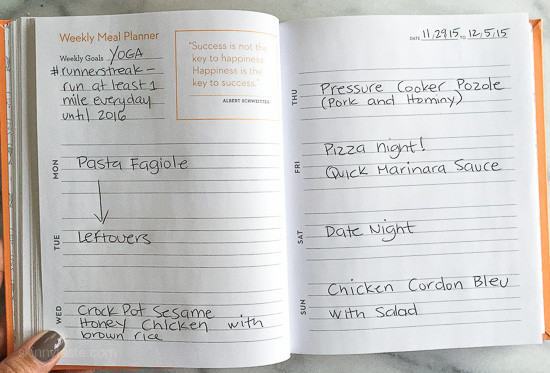 Weekly Meal Planner
Weekly Goals YOGA
#runnerstreak –
run at least 1
mile everyday
until 2016
"Success is not the
key to happiness.
Happiness is the
key to success."
ALBERT SCHWEITZER
MON
Pasta Fagiole
TUE
Leftovers
WED
Crock Pot Sesame
Honey Chicken with
brown rice
DATE 11,29,15 TO 12,5,15
THU
Pressure Cooker Pozole
(Pork and Hominy)
FRI
Pizza night!
Quick Marinara Sauce
SAT
Date Night
SUN
Chicken Cordon Bleu
with Salad
skinnytaste.com